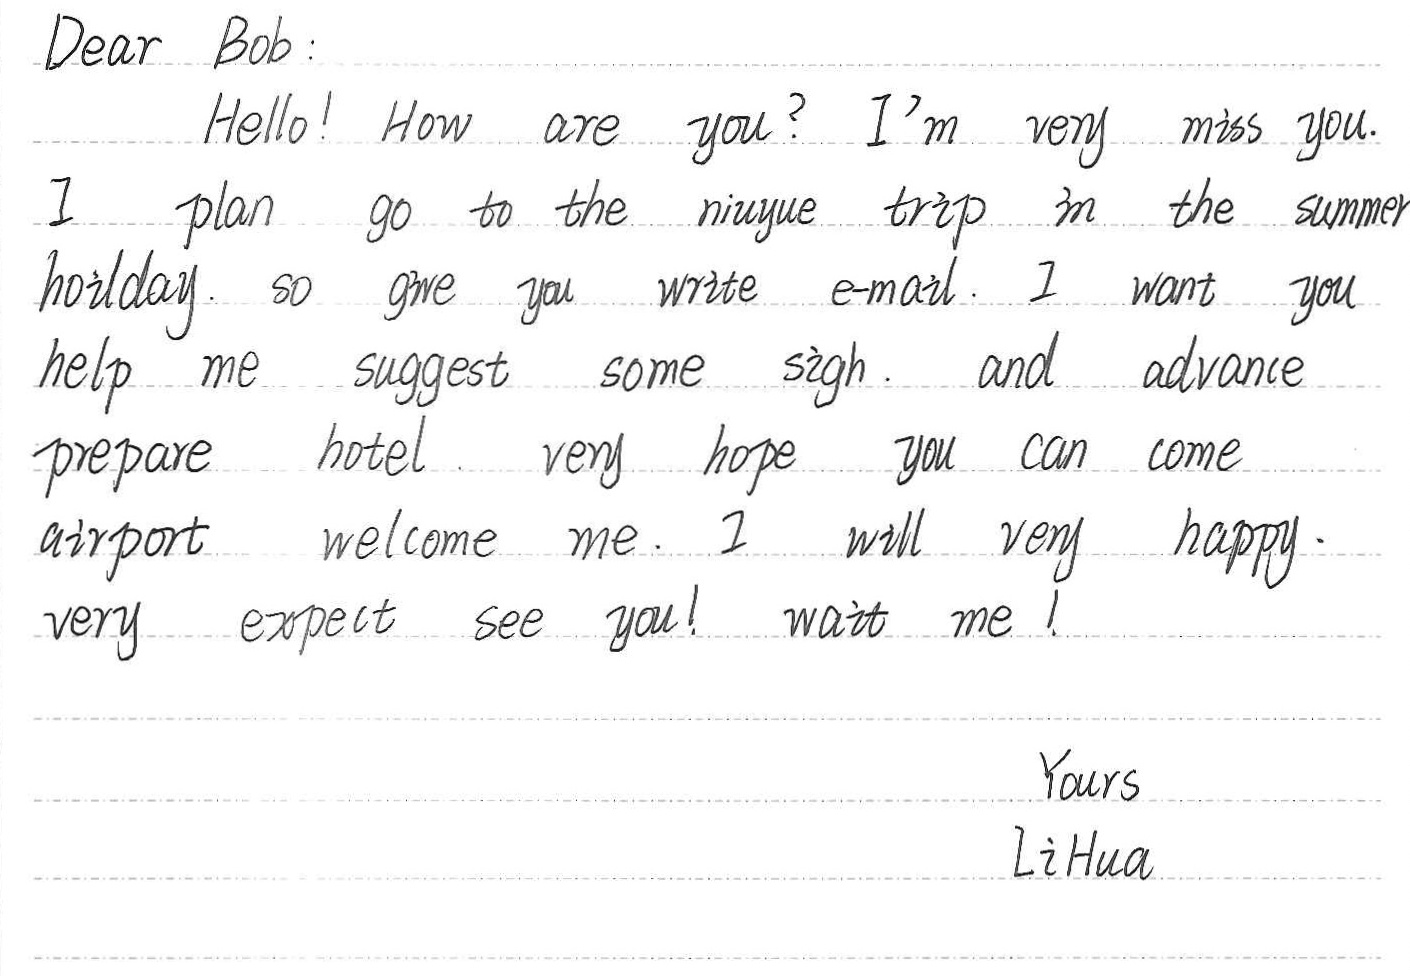 Dear Bob:
Hello! How are you? I'm very miss you.
I plan go to the niuyue trip in the summer
hoilday. so give you write e-mail. I want you
help me suggest some sigh. and advance
prepare hotel. very hope you can come
airport welcome me. I will very happy.
very expect see you! wait me!
Yours
LiHua